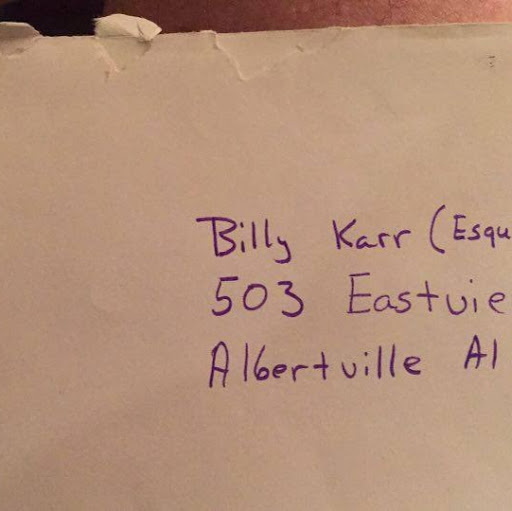 Billy Karr (Esqu
503 Eastvie
Albertville Al